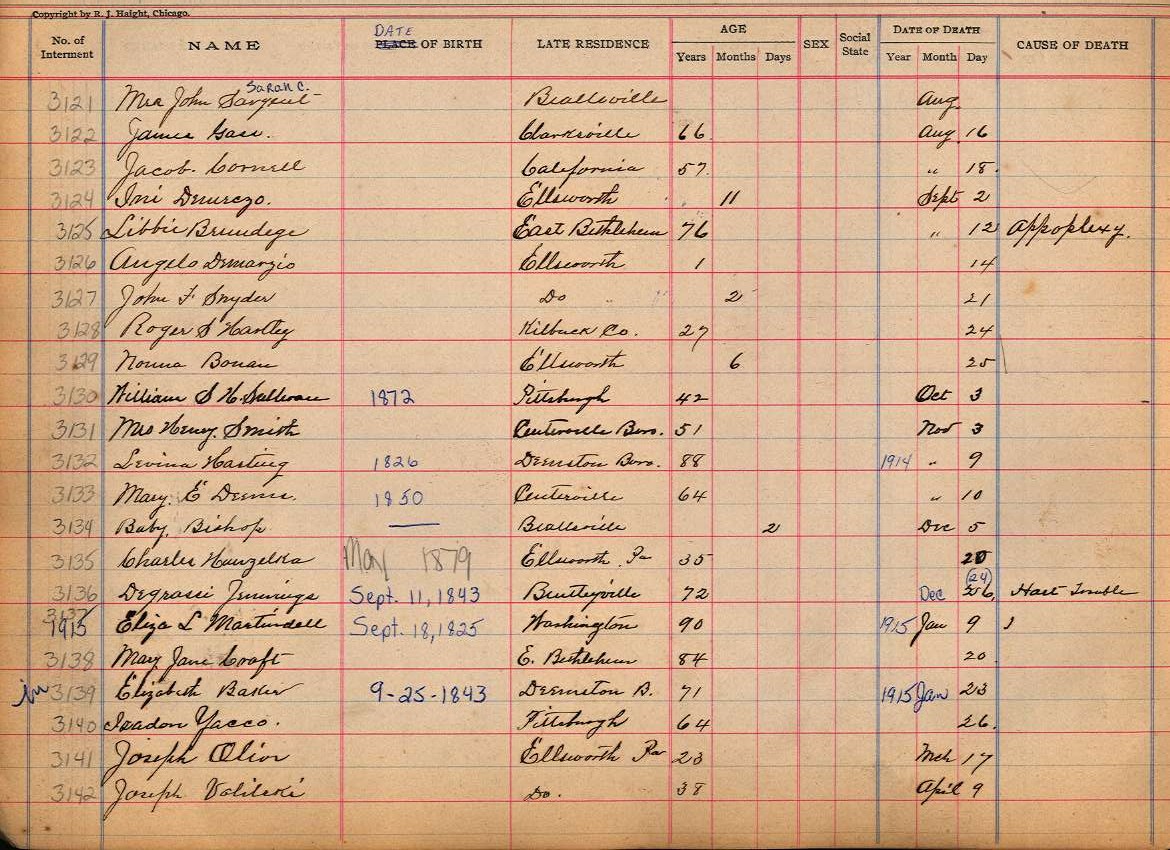 Copyright by R. J. Haight, Chicago.
No. of Interment NAME DATE PLACE OF BIRTH LATE RESIDENCE AGE Years Months Days SEX Social State DATE OF DEATH Year Month Day CAUSE OF DEATH
Sarah C.
3121 Mrs John Sargent Beallsville Aug.
3122 James Gass. Clarksville 66. Aug 16
3123 Jacob. Cornell California 57. " 18.
3124 Ellsworth 11 Sept 2
3125 Libbie Brundege East Bethlehem 76 " 12 Appoplexy.
3126 Angelo Demarzio Ellsworth 1 14
3127 John F Snyder Do " " 2 21
3128 Roger S Hartley Kilbuck Co. 27 24
3129 Nonna Bonan Ellsworth 6 25
3130 William S H. Sullivan 1872 Pittsburgh 42 Oct 3
3131 Mrs Henry. Smith Centerville Boro. 51 Nov 3
3132 Levina Hasting 1826 Deemston Boro. 88 1914 " 9
3133 Mary. E Deems. 1850 Centerville 64 " 10
3134 Baby. Bishop — Beallsville 2 Dec 5
3135 Charles Hanzelka May 1879 Ellsworth. Pa 35 20
3136 Degrassie Jennings Sept. 11, 1843 Bentleyville 72 Dec (24) 26, Hart Trouble
3137 1915 Eliza L Martindell Sept. 18, 1825 Washington 90 1915 Jan 9
3138 Mary Jane Craft E. Bethlehem 84 20.
in 3139 Elizabeth Baker 9-25-1843 Deemston B. 71 1915 Jan 23
3140 Isadon Yacco. Pittsburgh 64 26.
3141 Joseph Olior Ellsworth Pa 23 Mch 17
3142 Joseph Do. 38 April 9